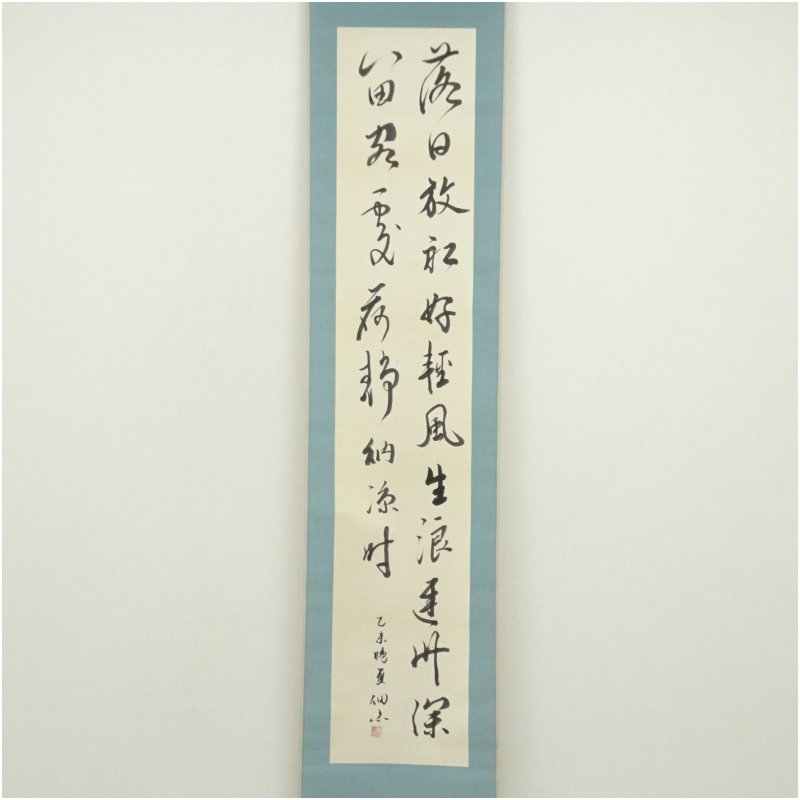 落日放船好輕風生浪遲竹深
留客處荷靜納涼時
乙未晩夏